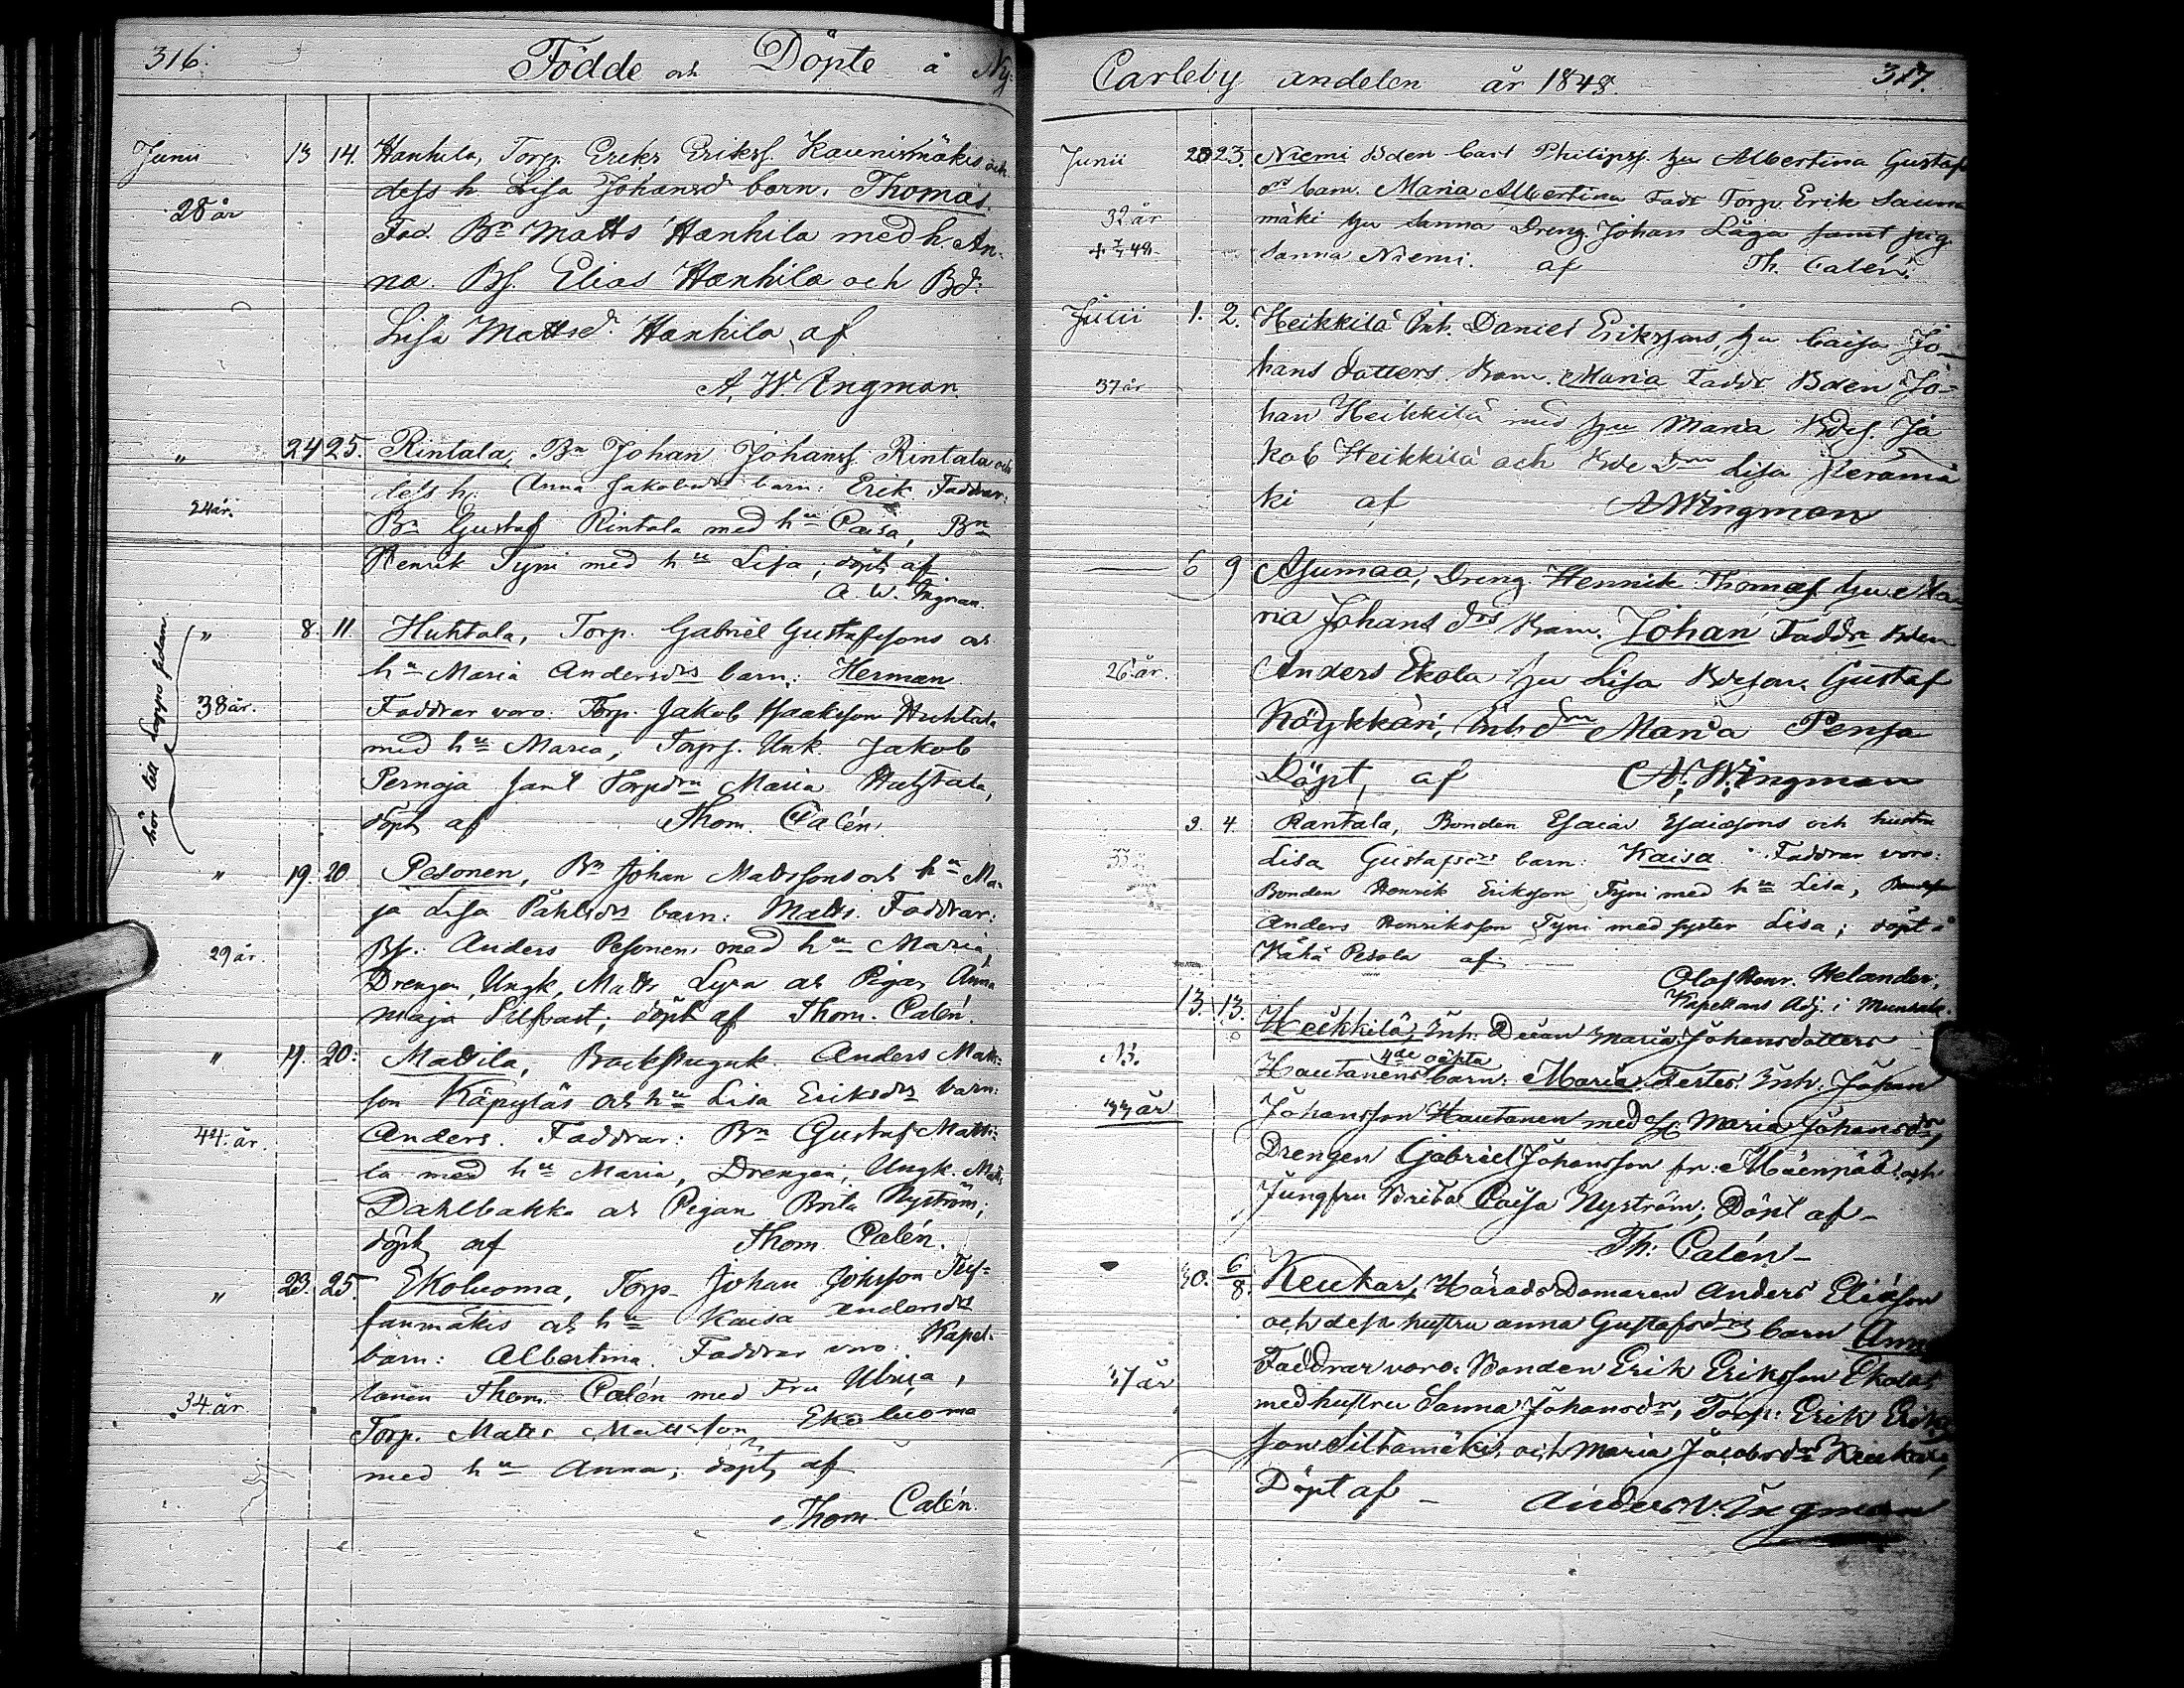 316.
Födde och Döpte å Ny-
Junii 13 14. Hanhila, Torp. Eriks Erikss. Kaunismäkis och
dess h. Lisa Johansd barn. Thomas.
28 år
Fad. Bn Matts Hanhila med h. An-
na. Bs. Elias Hanhila och Bd:
Lisa Mattsd. Hanhila, af
A. W. Ingman.
" 24 25. Rintala, Bn Johan Johanss. Rintala och
dess h. Anna Jakobsdrs barn: Erik. Faddrar:
24 år.
Bn Gustaf Rintala med hu Caisa, Bn
Henrik Tyni med hu Lisa; döpt af
A. W. Ingman.
hör till Lappo sedan.
" 8. 11. Huhtala, Torp. Gabriel Gustafssons och
hu Maria Andersdrs barn: Herman
38 år.
Faddrar voro: Torp. Jakob Isaksson Huhtala
med hu Maria, Torps. Unk Jakob
Pernaja samt Torpdrn Maria Huhtala,
döpt af Thom. Calén.
" 19. 20 Pesonen, Bn Johan Mattssons och hu Ma-
ja Lisa Påhlsdrs barn: Matts. Faddrar:
Bs. Anders Pesonen med hu Maria,
29 år.
Drengen, Ungk. Matts Lyra och Pigan Anna
Maja Silfvast; döpt af Thom. Calén.
" 19. 20: Mattila, Backstuguk. Anders Matts-
son Käpyläs och hu Lisa Eriksdrs barn:
44 år.
Anders. Faddrar: Bn Gustaf Matti-
la med hu Maria, Drengen, Ungk. Matts
Dahlbakka och Pigan Brita Nyström;
döpt af Thom. Calén.
" 23. 25. Ekoluoma, Torp. Johan Johsson
mäkis och hu Kaisa Andersdrs
barn: Albertina. Faddrar voro: Kapel-
lanen Thom. Calén med Fru Ulrica,
34 år.
Torp. Matts Mattsson Ekoluoma
med hu Anna; döpt af
Thom. Calén.
Carleby andelen år 1848. 317.
Junii 20 23. Niemi Bden Carl Philipss. hu Albertina Gustafs
drs barn. Maria Albertina Fadr Torp. Erik
32 år
mäki hu Sanna Dreng. Johan Låga samt pig.
Sanna Niemi. af Th. Calén.
Julii 1. 2. Heikkilä Inh. Daniel Erikssons, hu Caisa Jo-
hans dotters Barn. Maria Faddr. Bden Jo-
37 år
han Heikkilä med hu Maria Bdes. Ja
kob Heikkilä och Bde drn Lisa
ki af A W Ingman
6 9 Ajumaa, Dreng. Henrik Thomass. hu Ma-
ria Johans drs Barn. Johan Faddr Bden
26 år.
Anders Ekola hu Lisa Bdeson. Gustaf
Köykkäri, Inh. drn Maria Pensa
Döpt, af A. W. Ingman
3. 4. Rantala, Bonden Esaias Esaiassons och hustru
Lisa Gustafsdrs barn: Kaisa. Faddrar voro:
Bonden Henrik Eriksson Tyni med hu Lisa, Bondeson
Anders Henriksson Tyni med syster Lisa; döpt å
Kähä Pesola af
Olof Henr. Helander,
Kapellans Adj. i Munsala.
13. 13. Heikkilä, Inh. Maria Johansdotters
4de oäkta
Hautanens barn: Maria. Testes: Inh. Johan
33 år
Johansson Hautanen med H. Maria Johansdr,
Drengen Gabriel Johansson fr: Mäenpää och
Jungfru Brita Caisa Nyström; Döpt af
Th: Calén
30. 6/8. Keukar, HäradsDomaren Anders Eliasson
och dess hustru Anna Gustafsdrs barn Anna
Faddrar voro: Bonden Erik Eriksson Ekola
37 år
med hustru Sanna Johansdr, Torp: Erik Eriks
son Siltamäki, och Maria Jacobsdr Keukar,
Döpt af Anders W. Ingman